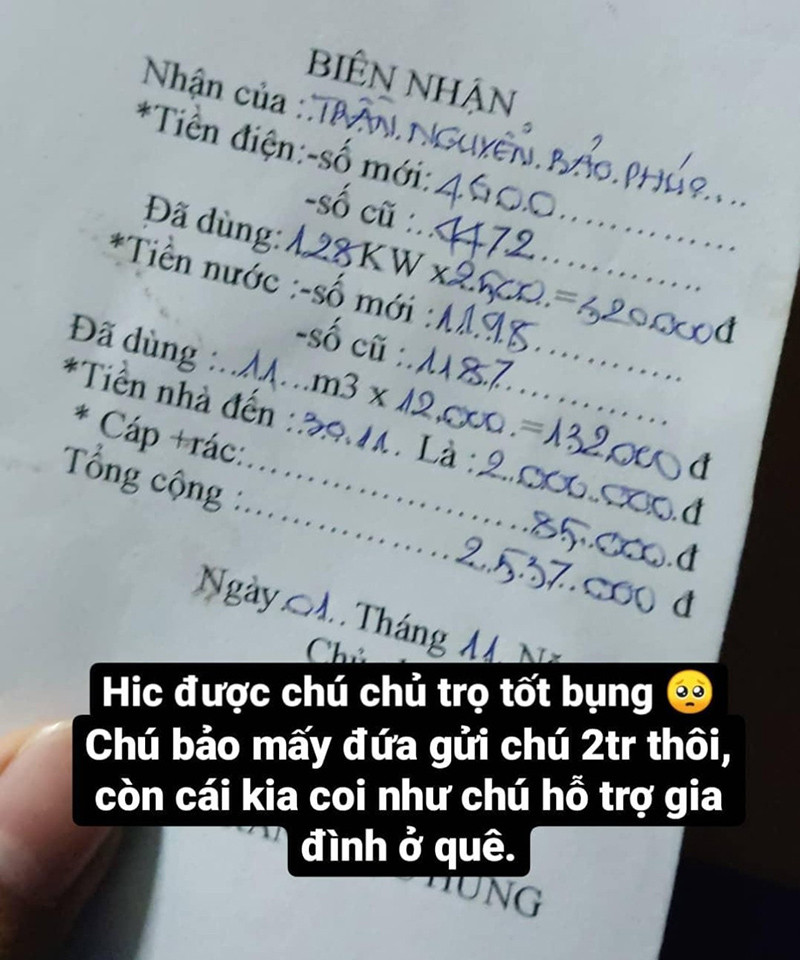 BIÊN NHẬN
Nhận của :.TRẦN.NGUYỄN.BẢO.PHÚC....
*Tiền điện:-số mới: 4600................
-số cũ :..4472................
Đã dùng: 128KW x2.500.=320.000đ
*Tiền nước :-số mới :1198..............
-số cũ :.1187................
Đã dùng :..11...m3 x 12.000.=132.000 đ
*Tiền nhà đến :.30.11. Là :2.000.000.đ
* Cáp +rác:..............................85.000.đ
Tổng cộng :......................2.537.000 đ
Ngày 01.. Tháng 11
Hic được chú chủ trọ tốt bụng 🥺
Chú bảo mấy đứa gửi chú 2tr thôi,
còn cái kia coi như chú hỗ trợ gia
đình ở quê.
HÙNG